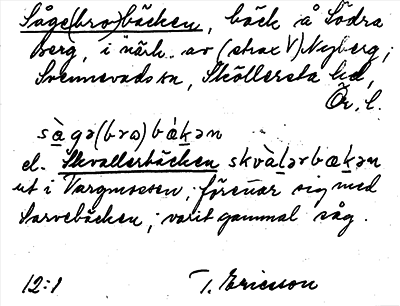 Såge(bro)bäcken, bäck å Södra
Berg, i närh. av (strax V) Nyberg;
Svennevads sn, Sköllersta hd,
Ör. l.
sàgə(bro)bækən
el. Skvallerbäcken skvàlərbækən
ut i Vargmossen; förenar sig med
Sarvebäcken; varit gammal såg.
12:1 T. Ericsson